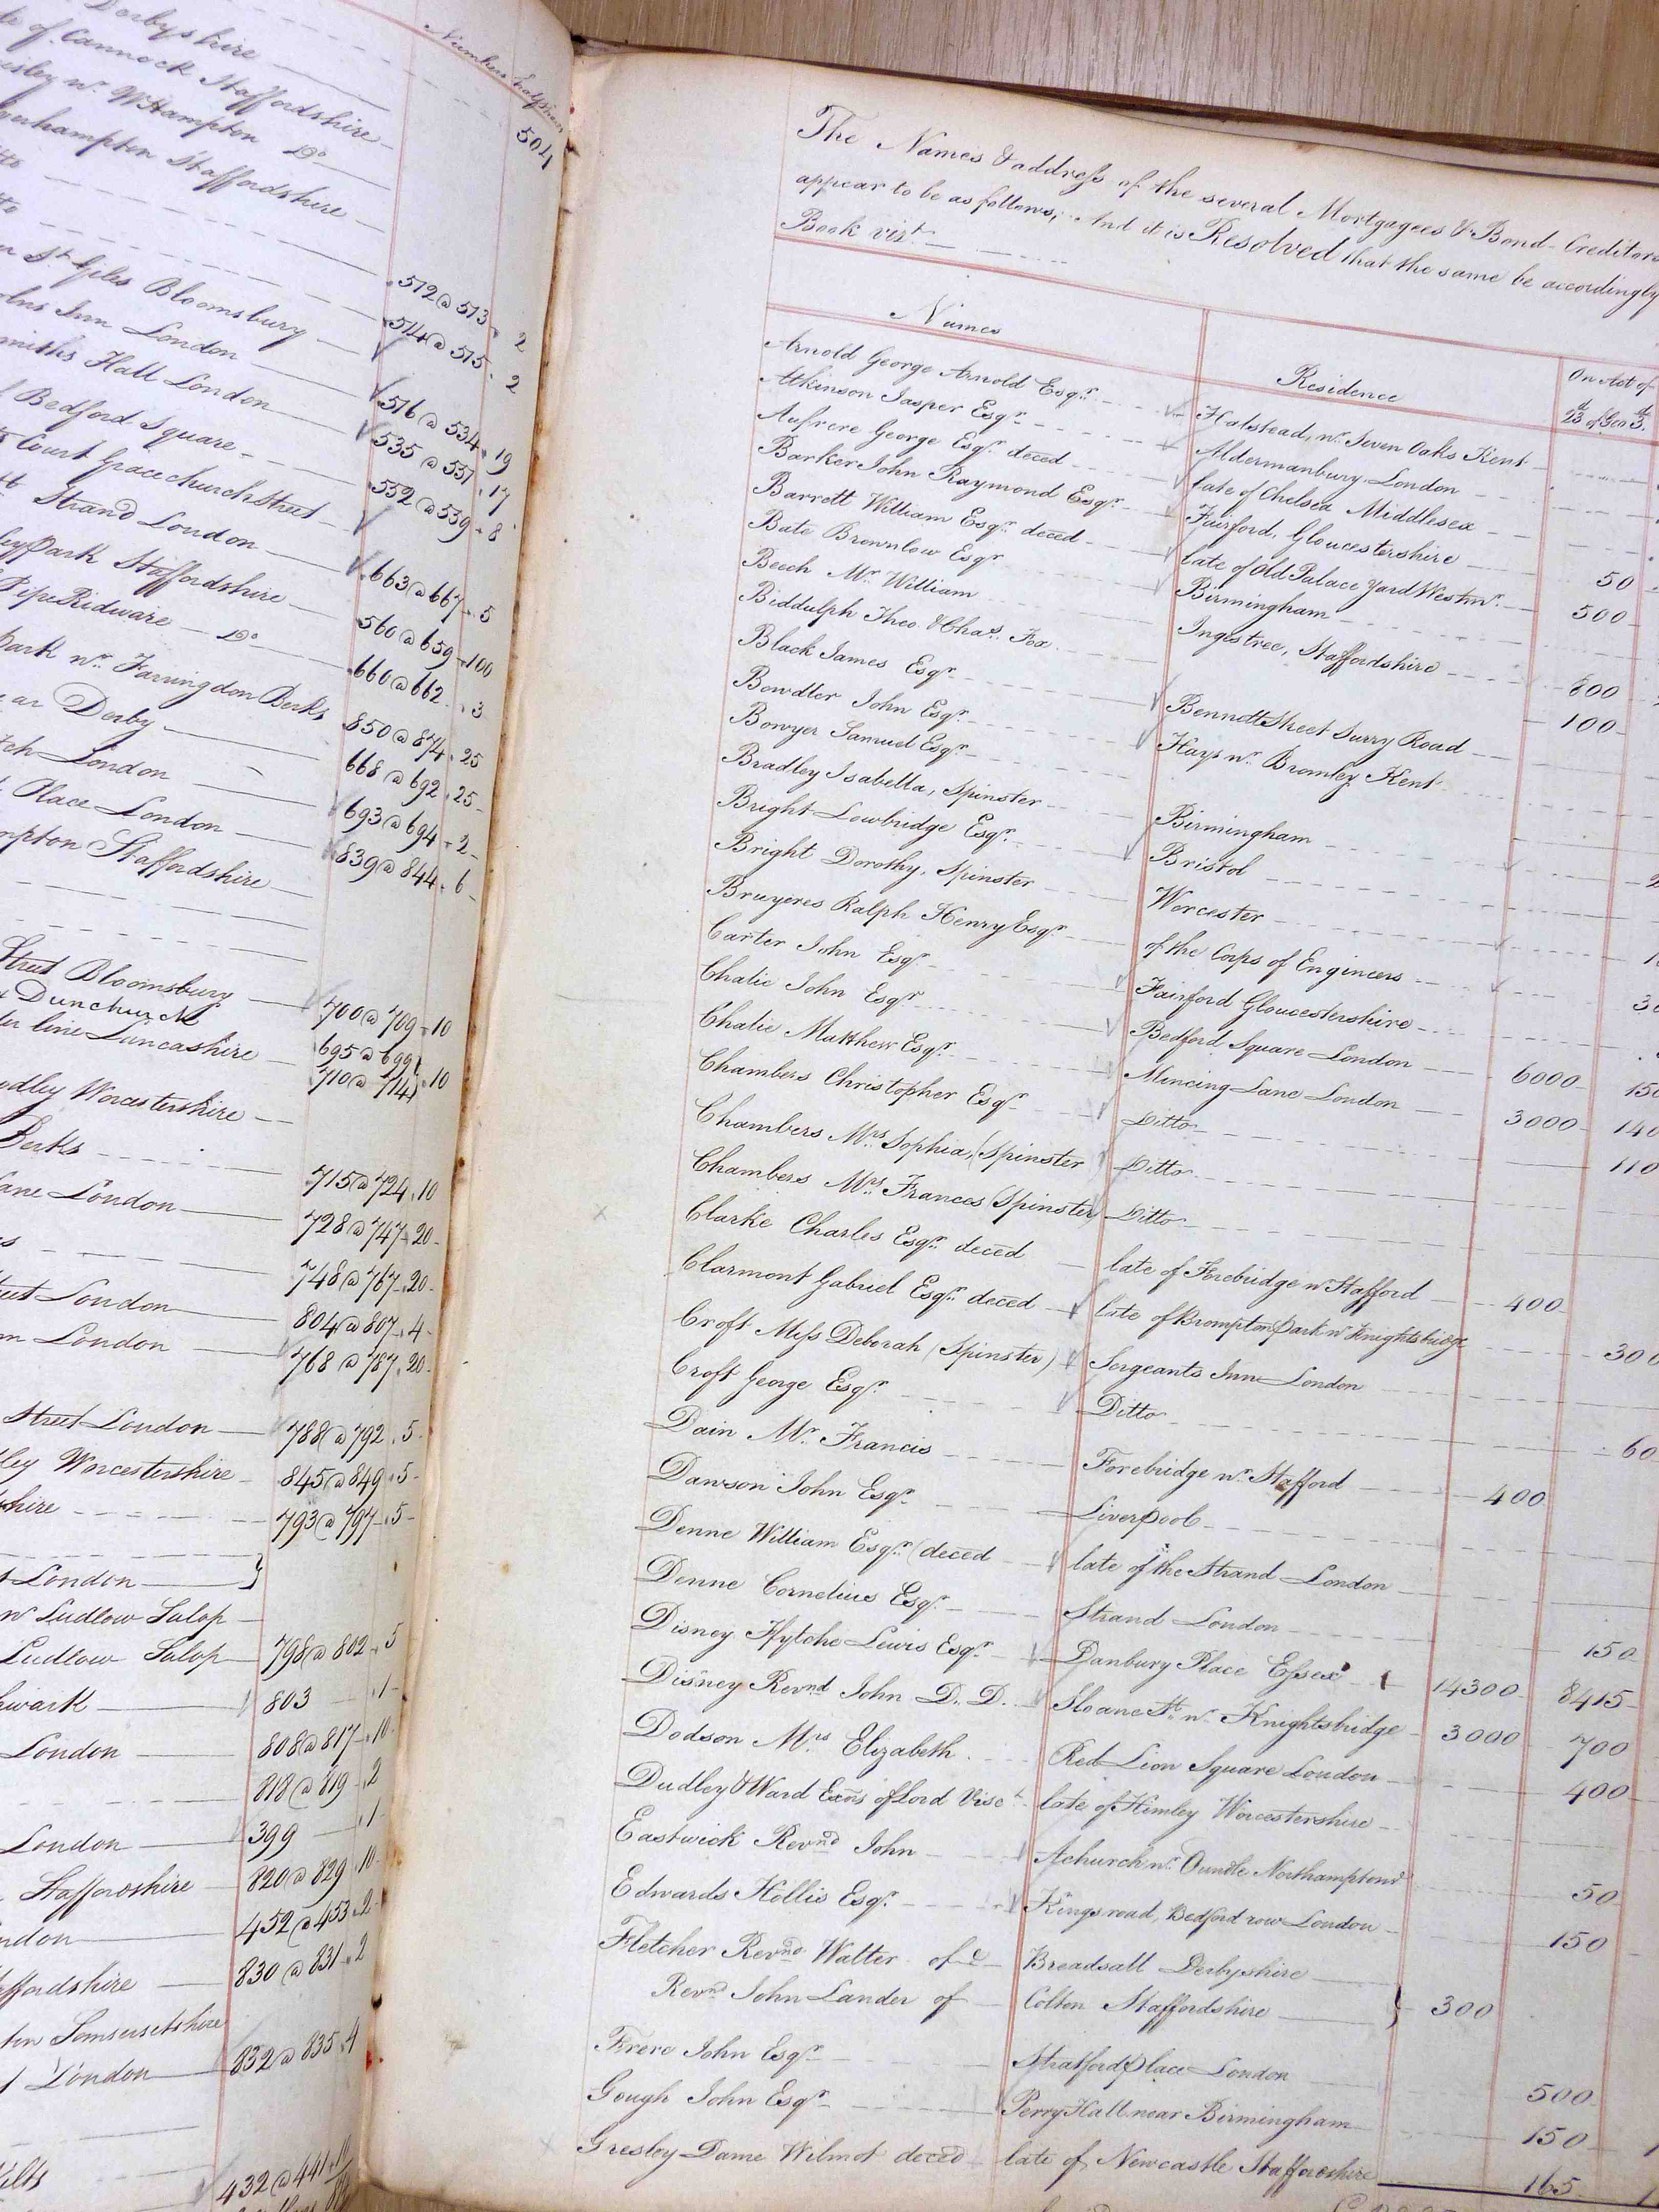 Derbyshire
of Cannock Staffordshire
nr. WHampton Do
Staffordshire
Numbers
504
572 @ 573 2
514 @ 515 2
St. Giles Bloomsbury
516 @ 534 19
Inn London
535 @ 551 17
Hall London
552 @ 559 8
Bedford Square
Court Gracechurch Street
663 @ 667 5
Strand London
560 @ 659 100
Park Staffordshire
660 @ 662 3
Pipe Ridware Do
850 @ 874 25
Park nr. Farringdon Berks
668 @ 692 25
Derby
693 @ 694 2
London
839 @ 844 6
Place London
Staffordshire
Street Bloomsbury
700 @ 709 10
Dunchurch
695 @ 699
Lancashire
710 @ 714 10
Worcestershire
715 @ 724 10
Berks
728 @ 747 20
Lane London
748 @ 767 20
804 @ 807 4
London
768 @ 787 20
London
Street London
788 @ 792 5
Worcestershire
845 @ 849 5
793 @ 797 5
London
nr Ludlow Salop
Ludlow Salop
798 @ 802 5
803 1
London
808 @ 817 10
818 @ 819 2
London
399 1
Staffordshire
820 @ 829 10
452 @ 453 2
830 @ 831 2
Somersetshire
London
832 @ 835 4
432 @ 441
The Names & address of the several Mortgagees & Bond Creditors
appear to be as follows; And it is Resolved that the same be accordingly
Book vizt.
Names Residence On Act of 23d of Geo 3d.
Arnold George Arnold Esqr. Halstead, nr. Seven Oaks Kent
Atkinson Jasper Esqr. Aldermanbury London
Aufrere George Esqr. deced late of Chelsea Middlesex
Barker John Raymond Esqr. Fairford, Gloucestershire
Barrett William Esqr. deced late of Old Palace Yard Westmr. 50
Bate Brownlow Esqr Birmingham 500
Beech Mr. William Ingestree, Staffordshire
Biddulph Theo. & Chas. Fox 800
Black James Esqr. Bennett Street Surry Road 100
Bowdler John Esqr. Hays nr. Bromley Kent
Bowyer Samuel Esqr.
Bradley Isabella, Spinster Birmingham
Bright Lowbridge Esqr. Bristol
Bright Dorothy, Spinster Worcester
Bruyeres Ralph Henry Esqr of the Corps of Engineers
Carter John Esqr. Fairford Gloucestershire
Chalie John Esqr Bedford Square London 6000
Chalie Matthew Esqr. Mincing Lane London 3000
Chambers Christopher Esqr. Ditto
Chambers Mrs. Sophia, (Spinster Ditto
Chambers Mrs. Frances (Spinster) Ditto
Clarke Charles Esqr. deced late of Forebridge nr Stafford 400
Clarmont Gabriel Esqr. deced late of Brompton Park nr Knightsbridge
Croft Miss Deborah (Spinster) Sergeants Inn London
Croft George Esqr. Ditto
Dain Mr. Francis Forebridge nr. Stafford 400
Dawson John Esqr. Liverpool
Denne William Esqr. (deced late of the Strand London
Denne Cornelius Esqr. Strand London 150
Disney Ffytche Lewis Esqr. Danbury Place Essex 14300 8415
Disney Revnd John D. D. Sloane St. nr Knightsbridge 3000 700
Dodson Mrs Elizabeth Red Lion Square London 400
Dudley & Ward Exors of Lord Visct. late of Himley Worcestershire
Eastwick Revnd John Achurch nr. Oundle Northamptons 50
Edwards Hollis Esqr. Kings road, Bedford row London 150
Fletcher Revnd Walter of & Breadsall Derbyshire
Revnd John Lander of Colton Staffordshire } 300
Frere John Esqr. Stratford Place London 500
Gough John Esqr. Perry Hall near Birmingham 150
Gresley Dame Wilmot deced late of Newcastle Staffordshire 165